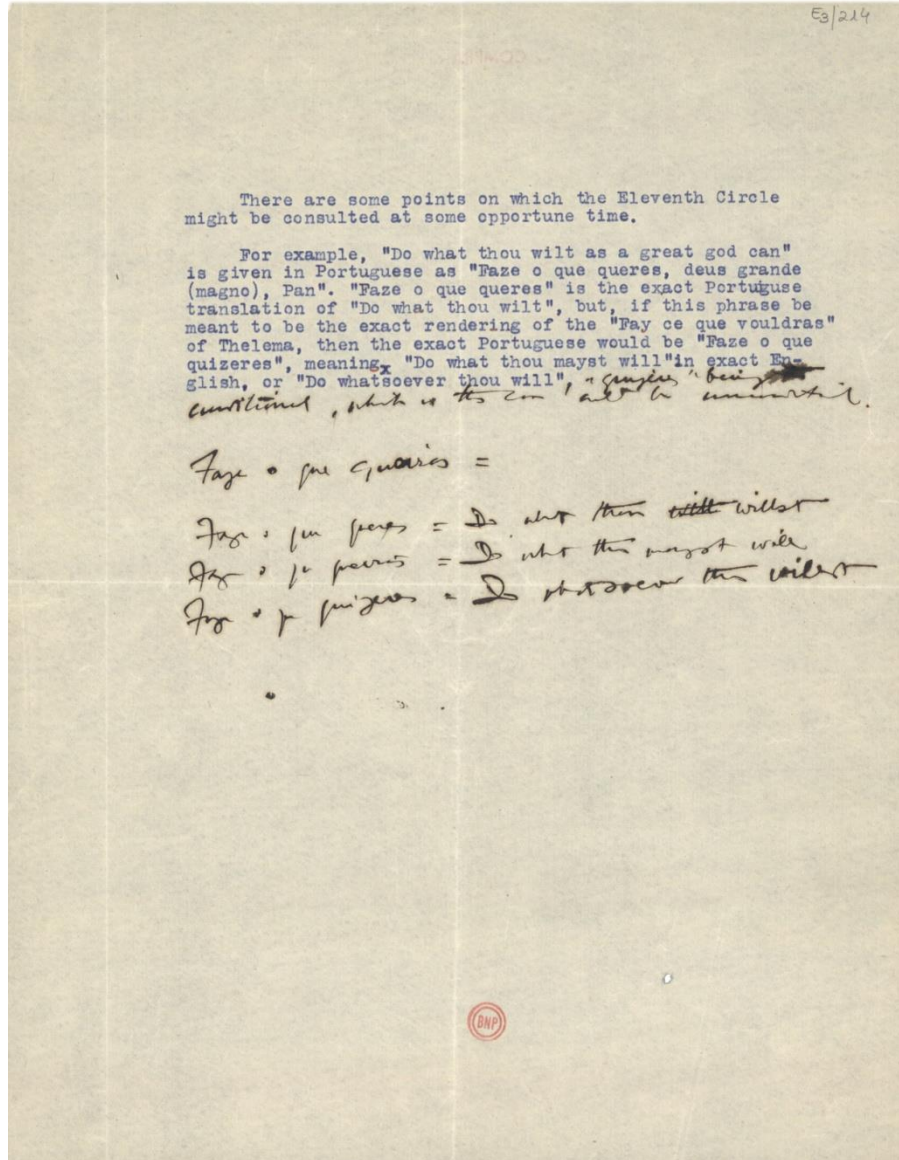 E3/214
There are some points on which the Eleventh Circle
might be consulted at some opportune time.
For example, "Do what thou wilt as a great god can"
is given in Portuguese as "Faze o que queres, deus grande
(magno), Pan". "Faze o que queres" is the exact Portuguse
translation of "Do what thou wilt", but, if this phrase be
meant to be the exact rendering of the "Fay ce que vouldras"
of Thelema, then the exact Portuguese would be "Faze o que
quizeres", meaning "Do what thou mayst will"in exact En-
glish, or "Do whatsoever thou will", "quizeres" being
conditional, which in this case
Faze o que queiras =
Faze o que queres = Do what thou willst
Faze o que queiras = Do what thou mayst will
Faze o que quizeres = Do whatsoever thou willest
BNP